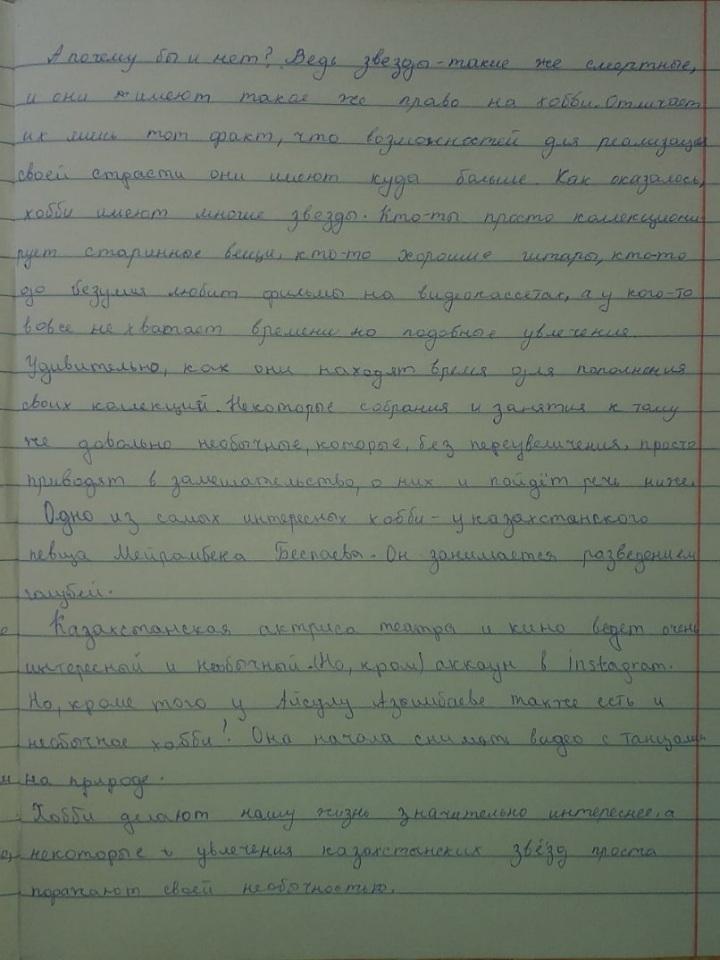 А почему бы и нет? Ведь звезды-такие же смертные,
и они имеют такое же право на хобби. Отличает
их лишь тот факт, что возможностей для реализаци
своей страсти они имеют куда больше. Как оказалось,
хобби имеют многие звезды. Кто-ты просто коллекциони
рует старинное вещи, кто-то хорошие гитары, кто-то
до безумия любит фильмы на видеокассетах, а у кого-то
вовсе не хватает времени на подобные увлечение.
Удивительно, как они находят время для пополнения
своих коллекций. Некоторые собрания и занятия к тому
же довольно необычные, которые, без переувеличения, просто
приводят в замешательство, о них и пойдёт речь ниже.
Одно из самых интересных хобби - у казахстанского
певца Мейрамбека Беспаева. Он занимается разведением
голубей.
Казахстанская актриса театра и кино ведет очень
интересный и необычный. (Но, кром) аккаун в instagram.
Но, кроме того у Айсулу Азимбаеве также есть и
необычное хобби! Она начала снимать видео с танцами
на природе.
Хобби делают нашу жизнь значительно интереснее, а
некоторые увлечения казахстанских звёзд проста
поражают своей необычностью.